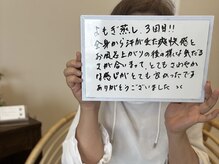 よもぎ蒸し、3回目!!
全身から汗が出た爽快感と
お風呂上がりの様な気だる
さが合いまって、とてもさわやか
な感じがとても良かったです
ありがとうございました